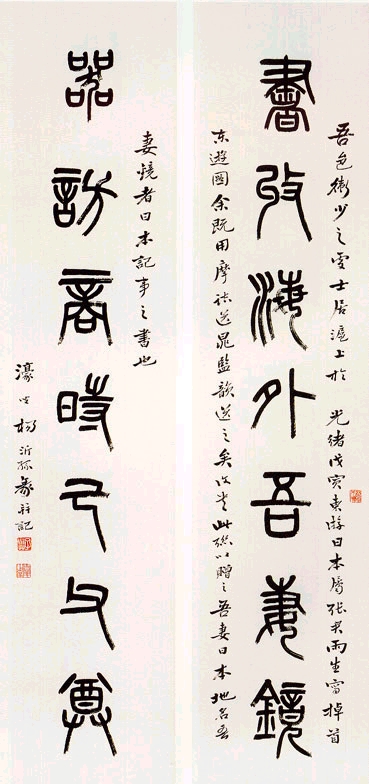 書攷海外吾妻鏡
器訪商時己父尊
吾邑衛少之雲士居滬上於 光緒戊寅東游日本屬張君雨生寫掉首
东遊圖余既用摩詰送晁監韻送之矣此聯以贈之吾妻日本地名吾
妻鏡者日本記事之書也
濠叟楊沂孫篆并記